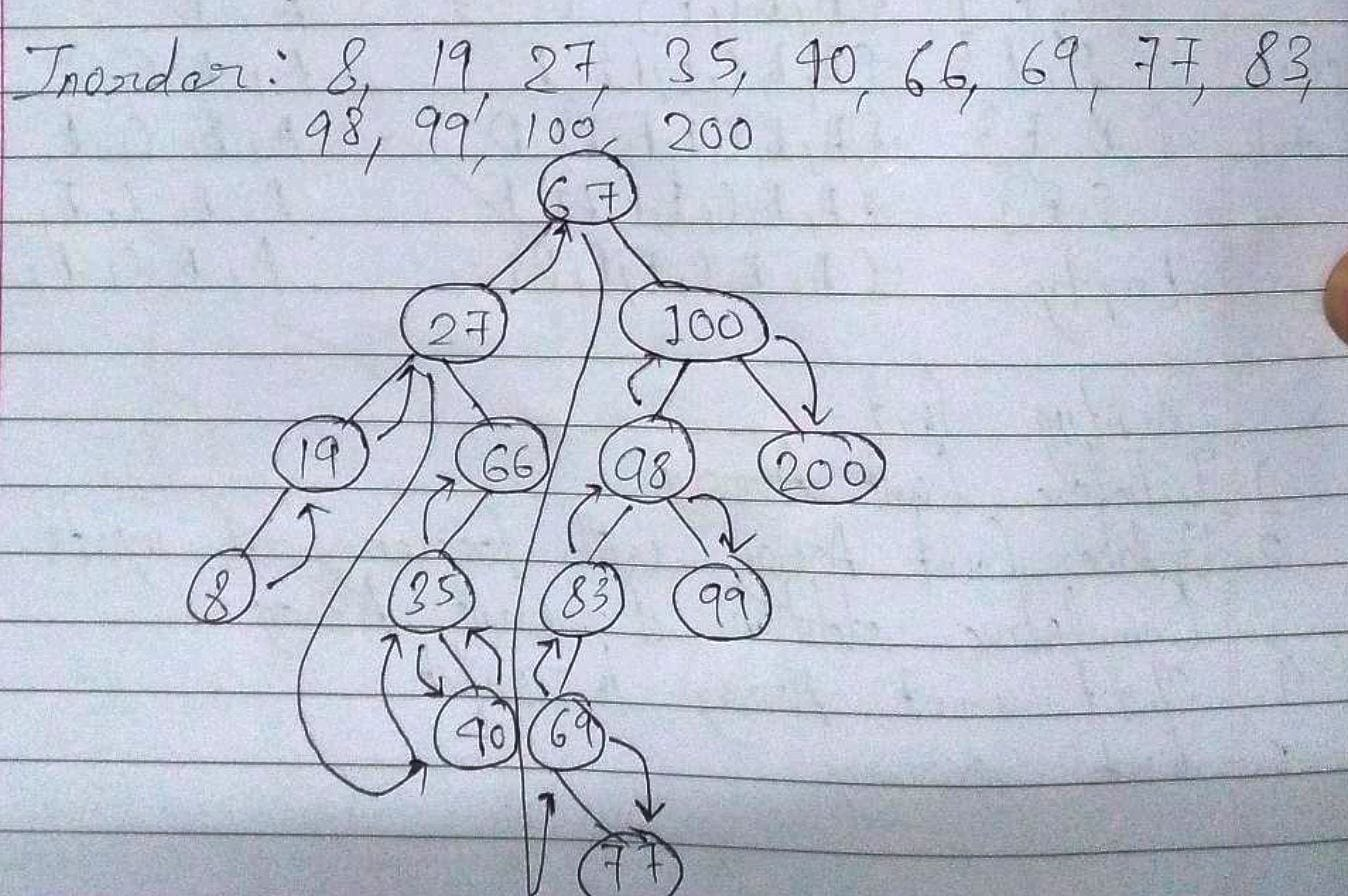 Inorder: 8, 19, 27, 35, 40, 66, 69, 77, 83,
98, 99, 100, 200
67
27 100
19 66 98 200
8 35 83 99
40 69
77